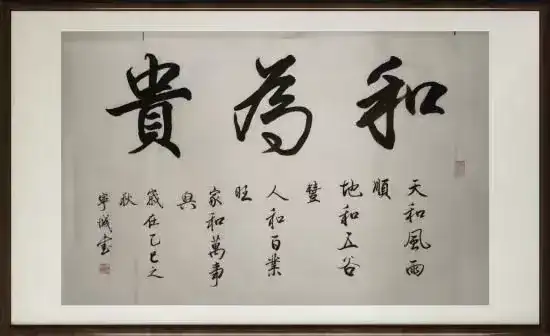 和為貴
天和風雨
順
地和五谷
豐
人和百業
旺
家和萬事
興
歲在乙巳之
秋
誠書